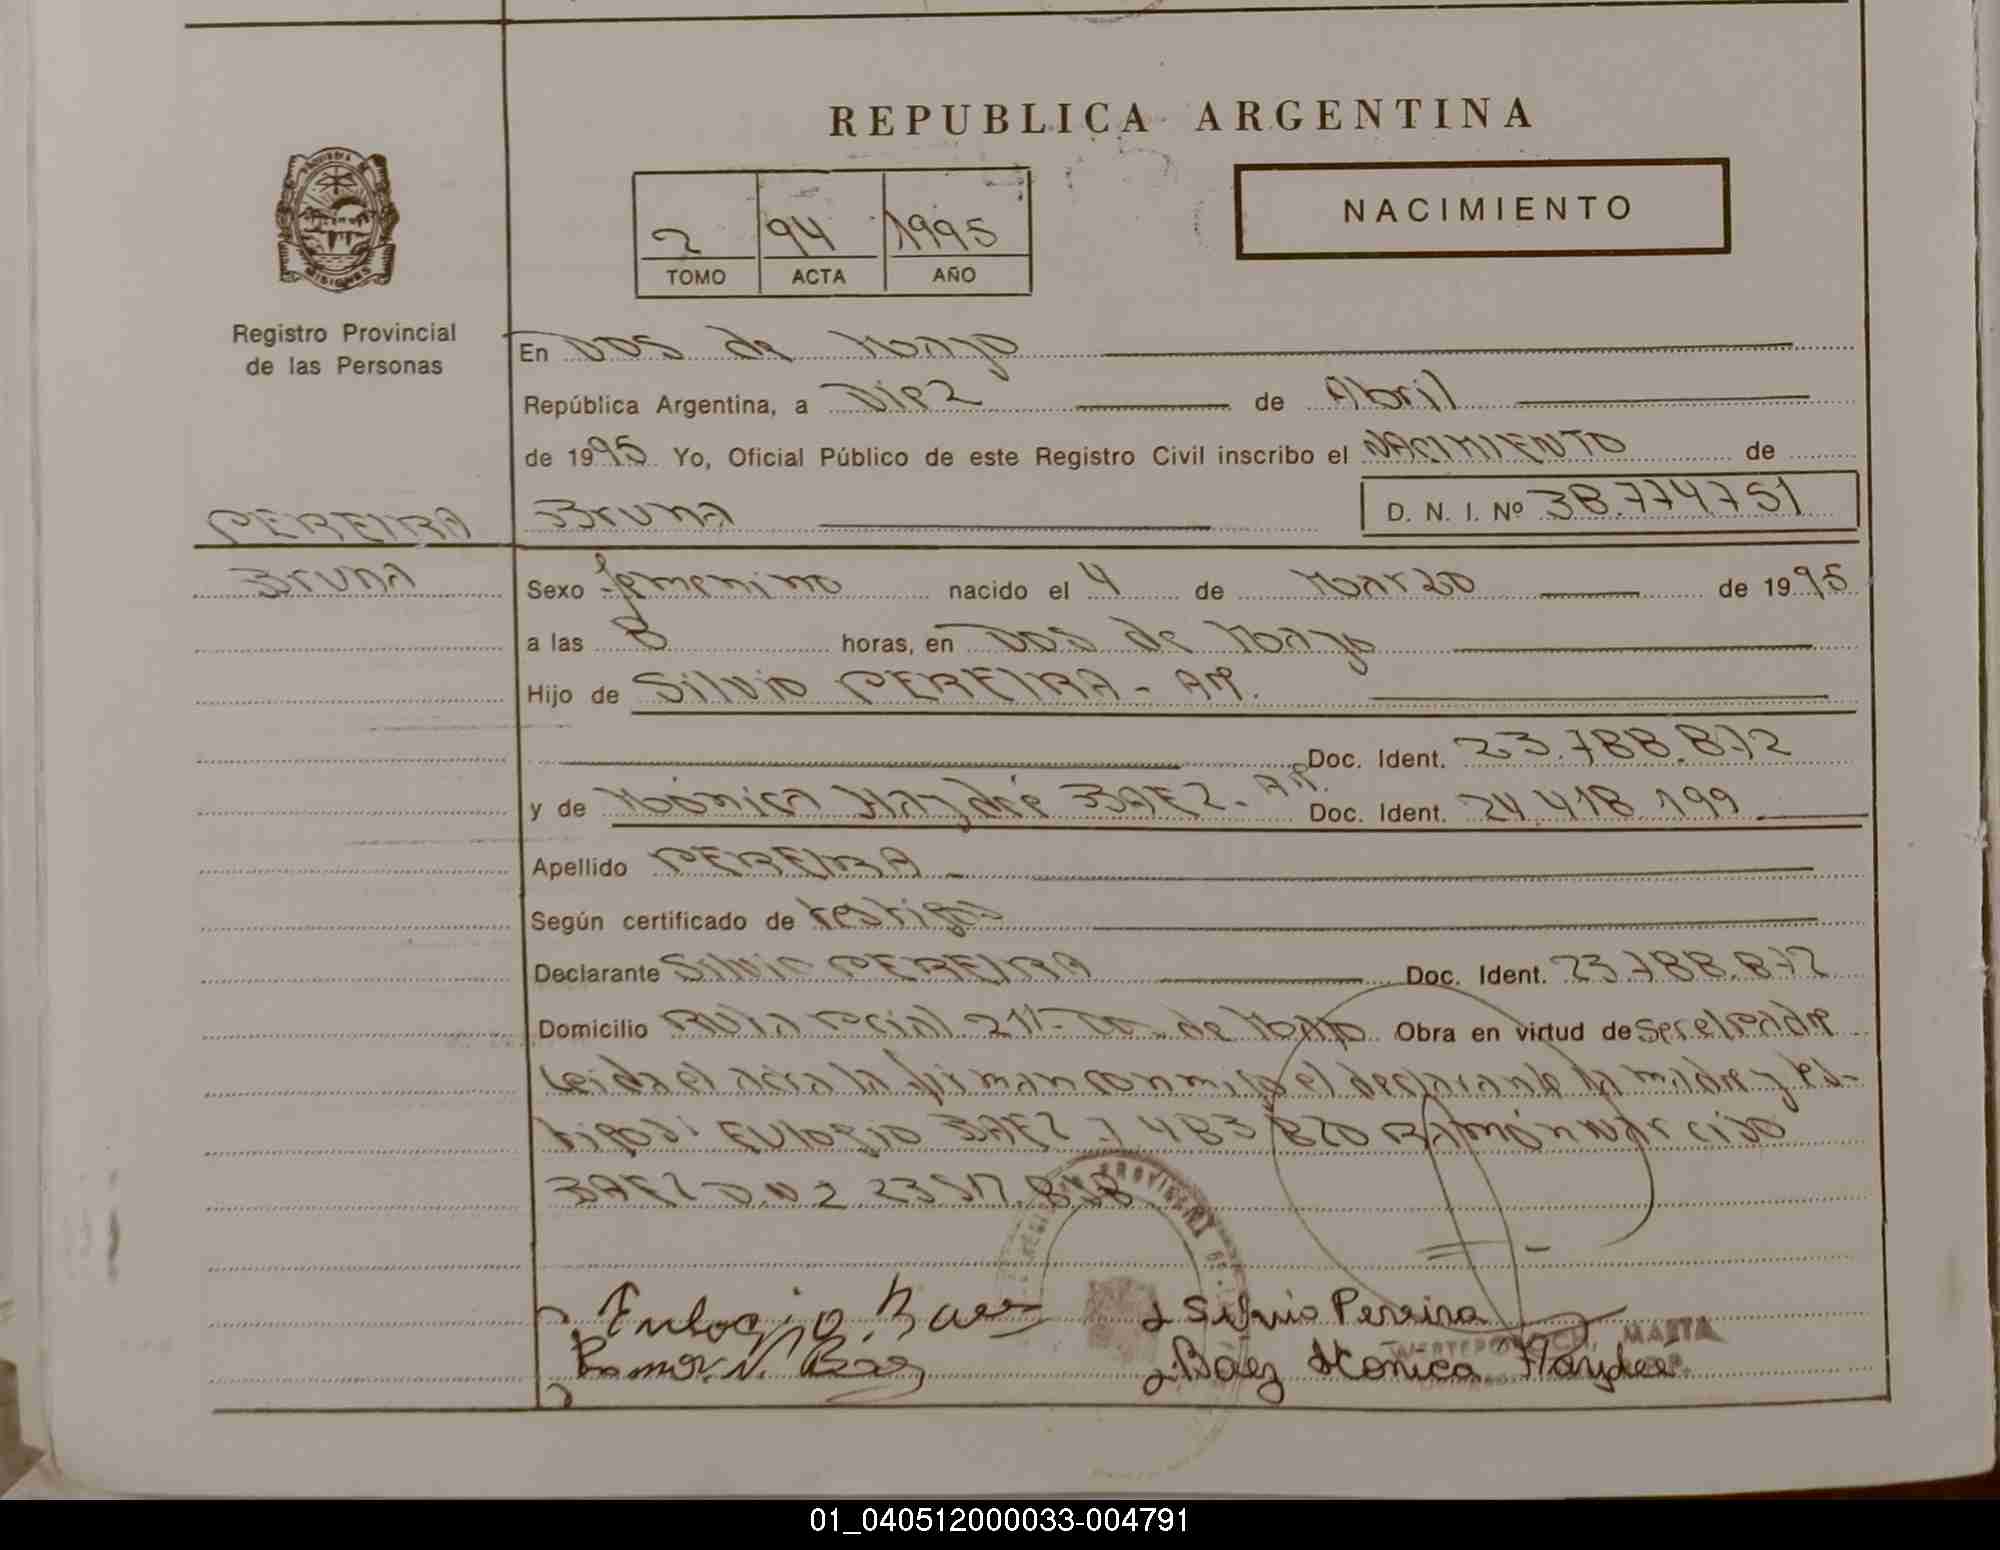 REPUBLICA ARGENTINA
NACIMIENTO
2 94 1995
TOMO ACTA AÑO
MISIONES
Registro Provincial
de las Personas
En Dos de Mayo
República Argentina, a Diez de Abril
de 1995 Yo, Oficial Público de este Registro Civil inscribo el NACIMIENTO de
PEREIRA
Bruna D. N. I. Nº 38.774.751
Bruna
Sexo femenino nacido el 4 de Marzo de 1995
a las 8 horas, en Dos de Mayo
Hijo de Silvio PEREIRA - Ar.
Doc. Ident. 23.788.872
y de Mónica Haydeé BAEZ - Ar. Doc. Ident. 24.418.199
Apellido PEREIRA -
Según certificado de testigos
Declarante Silvio PEREIRA Doc. Ident. 23.788.872
Domicilio Ruta Pcial 211 - Dos de Mayo Obra en virtud de ser el padre
Leida el acta la firman conmigo el declarante la madre y tes-
tigos: Eulogio BAEZ 7.483.820 Ramón Narciso
BAEZ D.N.I. 23.517.858
Eulogio Baez Silvio Pereira
Ramon N. Báez Báez Monica Haydee
MARTA
01_040512000033-004791